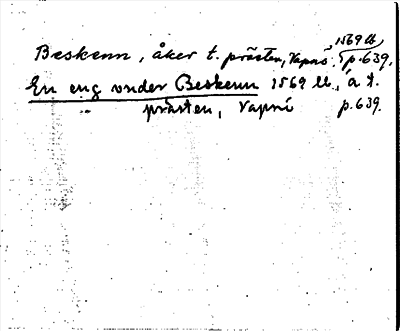 1569 ll
Beskenn, åker t. prästen, Vapnö. p. 639.
En eng under Beskenn 1569 ll, å t.
prästen, Vapnö p. 639.